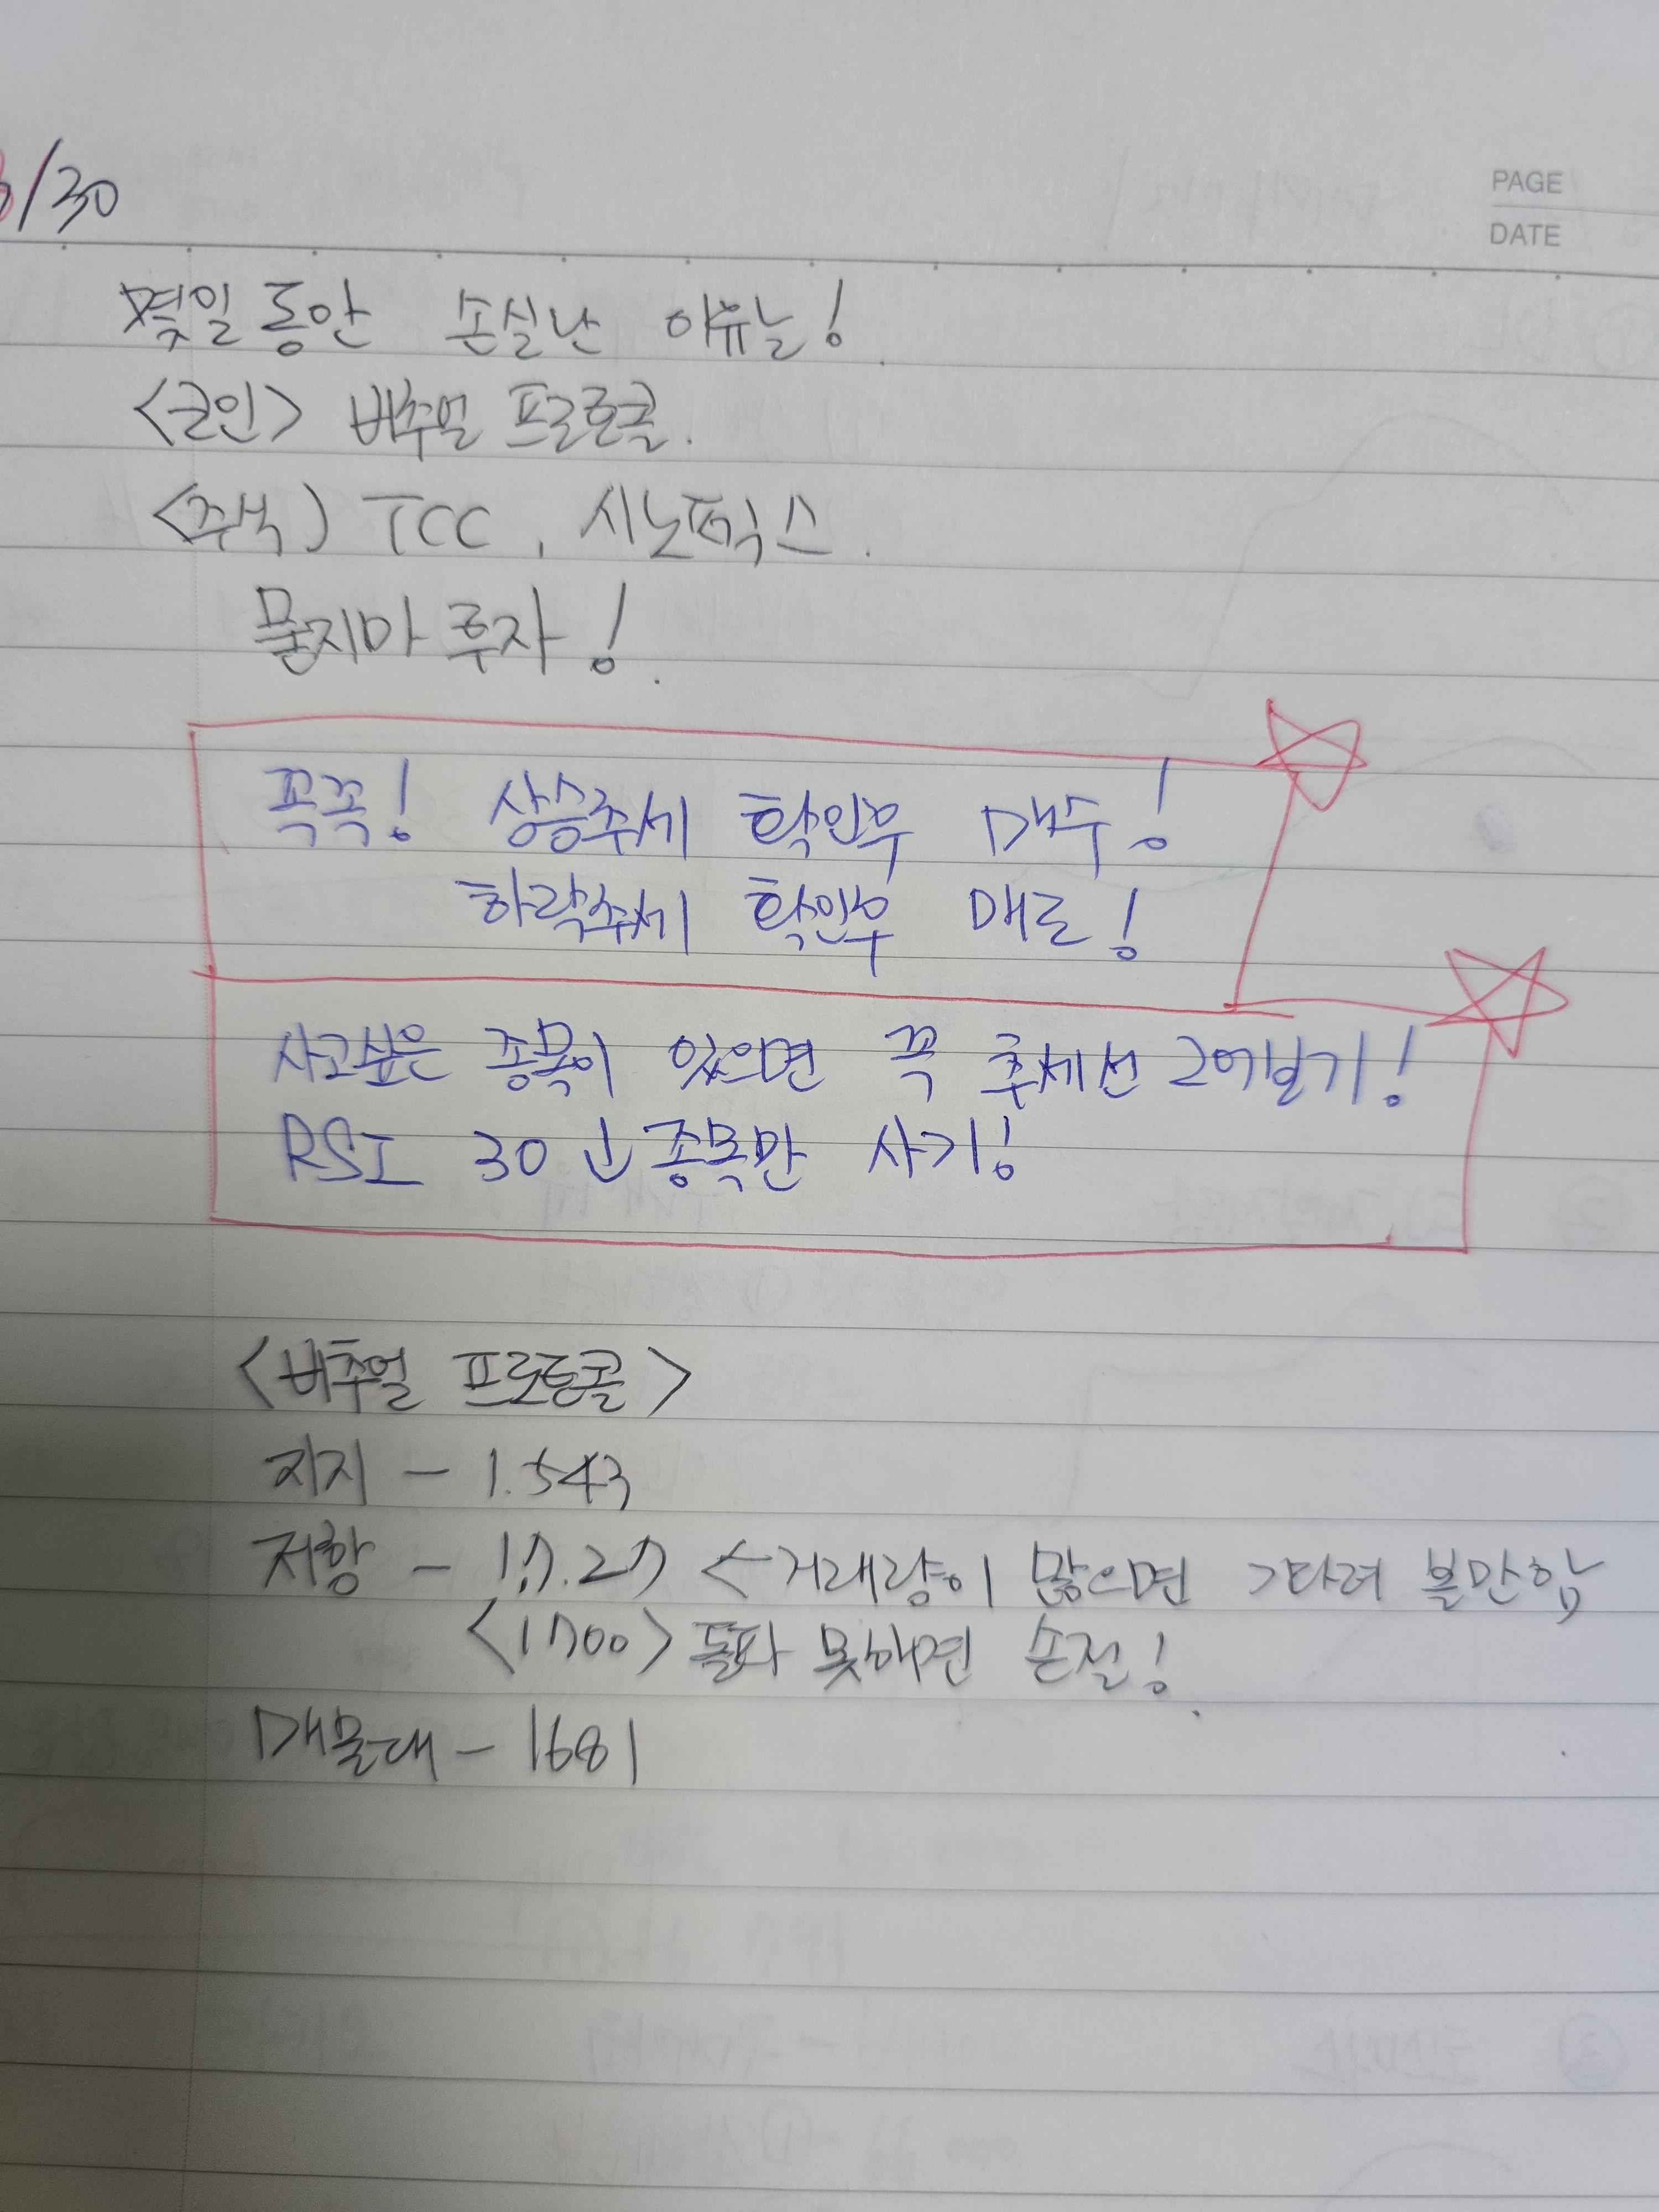 /30
PAGE
DATE
몇일 동안 손실난 이유는!
<코인> 버추얼 프로토콜.
<주식) TCC, 시노펙스.
묻지마 투자!
꼭꼭! 상승추세 확인후 매수!
하락추세 확인후 매도!
사고싶은 종목이 있으면 꼭 추세선 그어보기!
RSI 30↓종목만 사기!
<버추얼 프로토콜>
지지 - 1.543
저항 - 1.7.27 <- 거래량이 많으면 기다려 볼만함
<1700> 돌파 못하면 손절!
매물대 - 1681